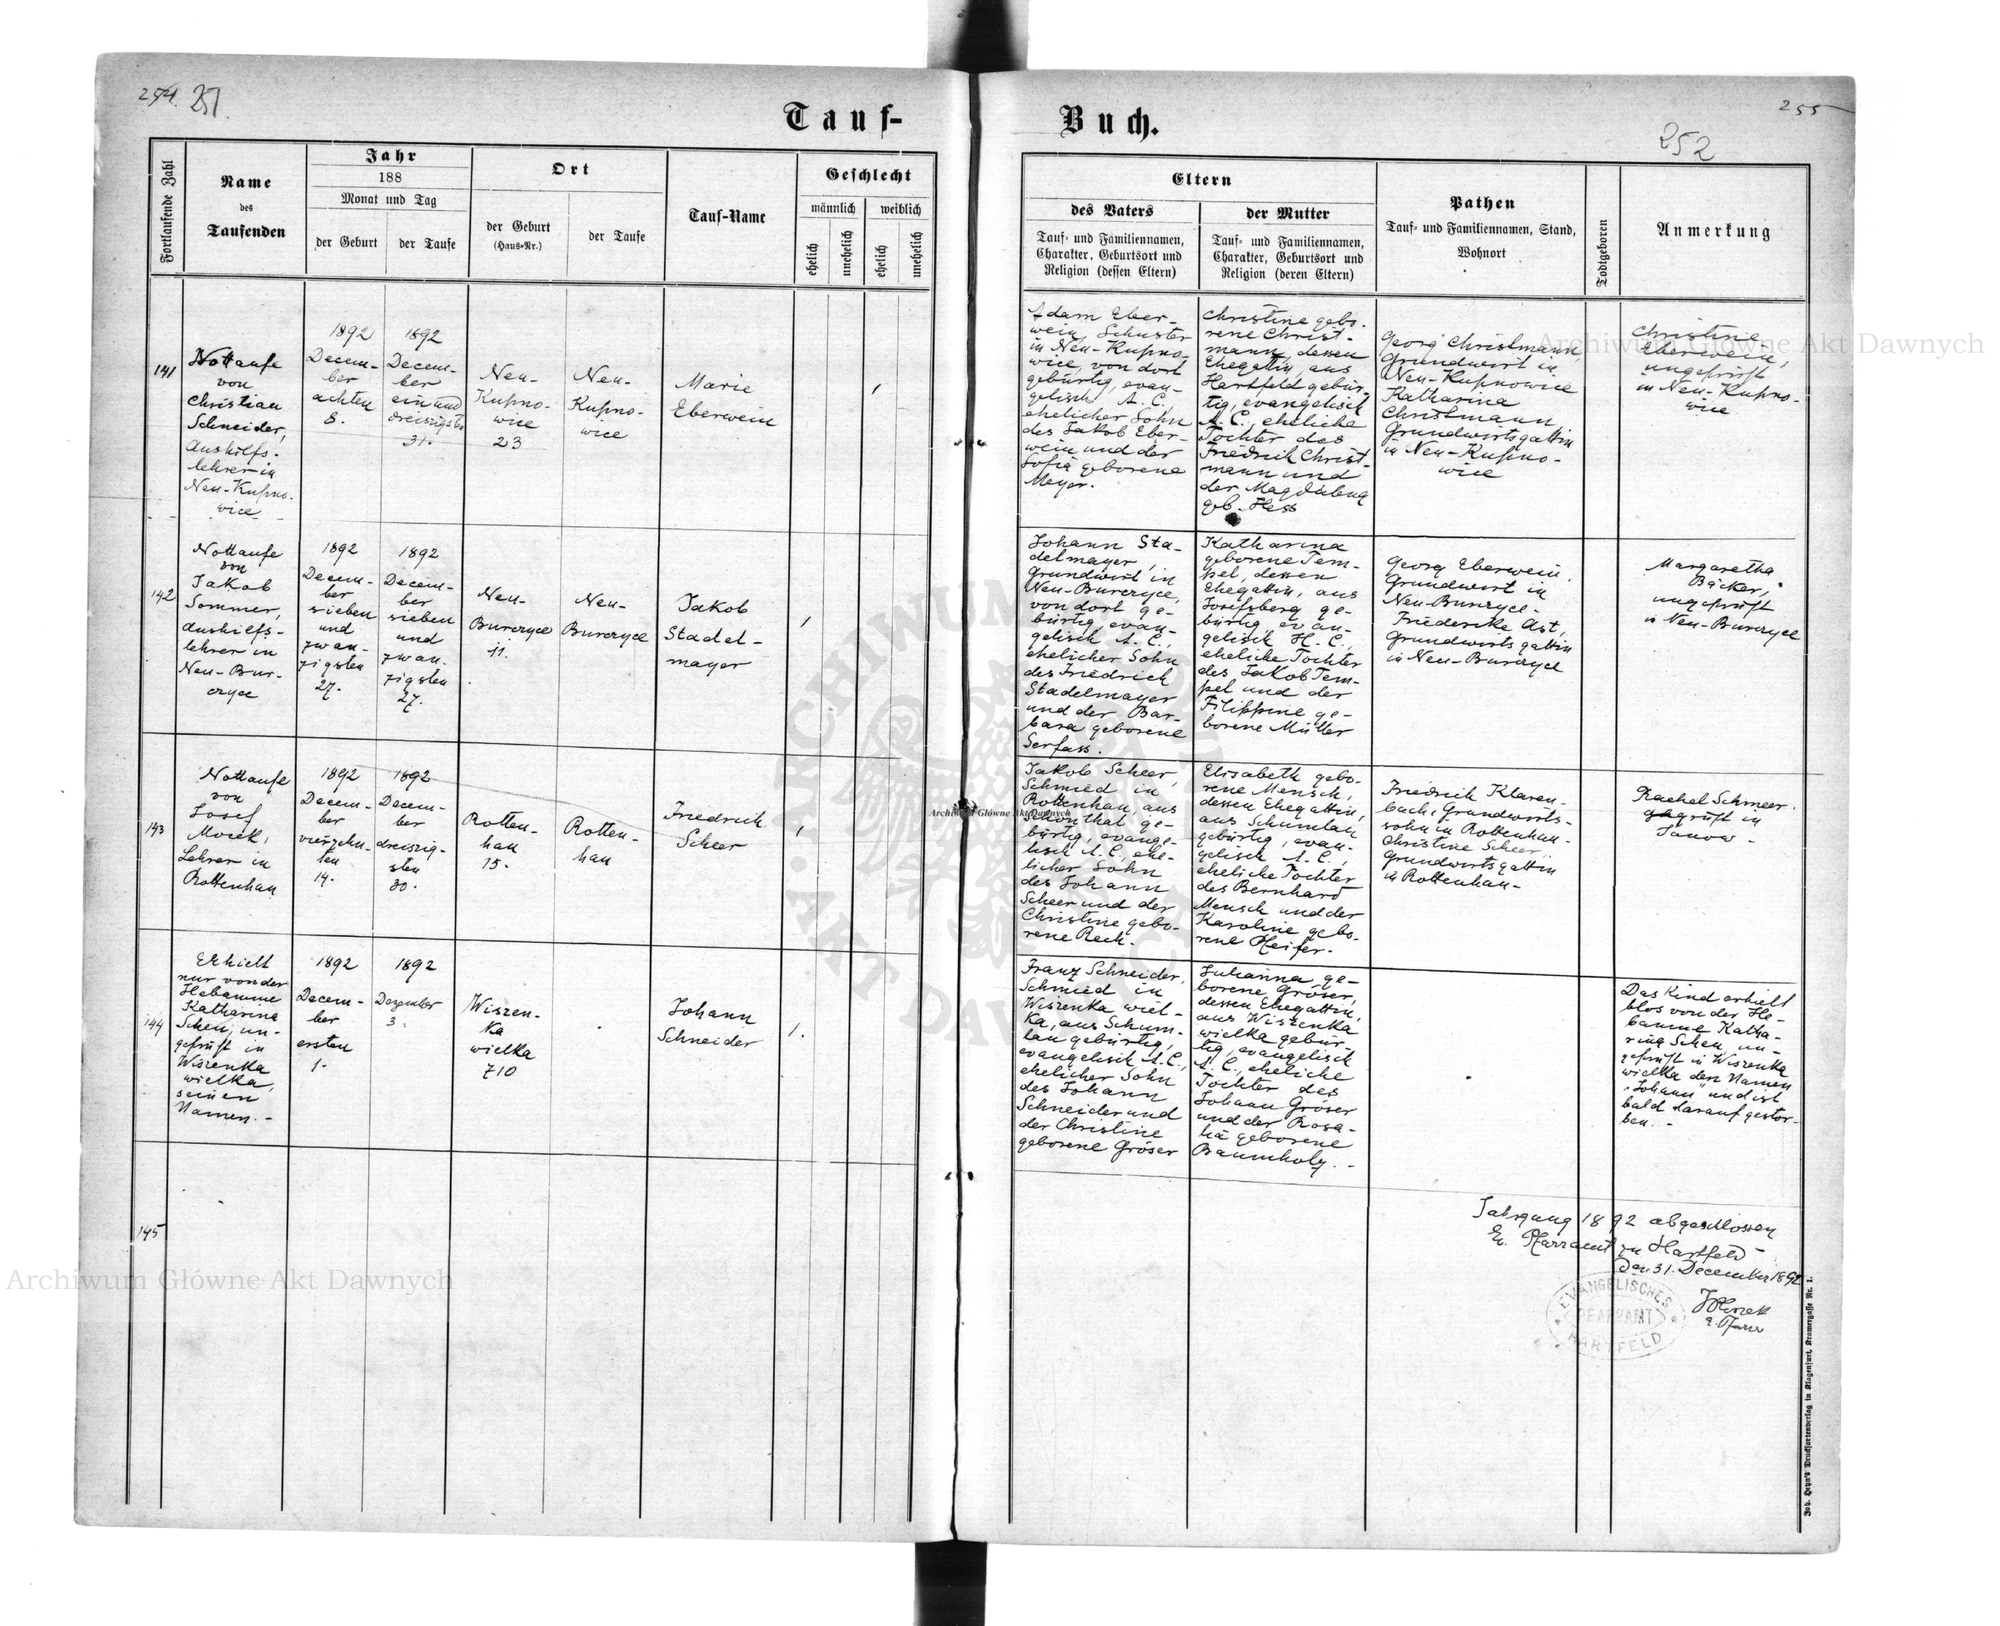 254. 251.
Tauf-
Fortlaufende Zahl
Name
des
Taufenden
Jahr
188
Monat und Tag
der Geburt
der Taufe
Ort
der Geburt
(Haus-Nr.)
der Taufe
Tauf-Name
Geschlecht
männlich
weiblich
ehelich
unehelich
ehelich
unehelich
141
Nottaufe
von
Christian
Schneider,
Aushilfs-
lehrer in
Neu-Kupno-
wice
1892
Decem-
ber
achten
8.
1892
Decem-
ber
ein und
dreiszigsten
31.
Neu-
Kupno-
wice
23
Neu-
Kupno-
wice
Marie
Eberwein
142
Nottaufe
von
Jakob
Sommer,
Aushilfs-
lehrer in
Neu-Bur-
czyce
1892
Decem-
ber
sieben
und
zwan-
zigsten
27.
1892
Decem-
ber
sieben
und
zwan-
zigsten
27.
Neu-
Burczyce
11.
Neu-
Burczyce
Jakob
Stadel-
mayer
143
Nottaufe
von
Josef
Mock,
Lehrer in
Rottenhan
1892
Decem-
ber
vierzehn-
ten
14.
1892
Decem-
ber
dreiszig-
sten
30.
Rotten-
han
15.
Rotten-
han
Friedrich
Scheer
144
Erhielt
nur von der
Hebamme
Katharina
Scheu, un-
geprüft in
Wiszenka
wielka,
seinen
Namen. -
1892
Decem-
ber
ersten
1.
1892
Dezember
3.
Wiszen-
ka
wielka
710
Johann
Schneider
1.
145
Buch.
255
252
Eltern
des Vaters
Tauf- und Familiennamen,
Charakter, Geburtsort und
Religion (dessen Eltern)
der Mutter
Tauf- und Familiennamen,
Charakter, Geburtsort und
Religion (deren Eltern)
Pathen
Tauf- und Familiennamen, Stand,
Wohnort
Todtgeboren
Anmerkung
Adam Eber-
wein, Schuster
in Neu-Kupno-
wice, von dort
gebürtig, evan-
gelisch A. C.
ehelicher Sohn
des Jakob Eber-
wein und der
Sofia geborene
Meyer.
Christine gebo-
rene Christ-
mann, dessen
Ehegattin, aus
Hartfeld gebür-
tig, evangelisch
A. C., eheliche
Tochter des
Friedrich Christ-
mann und
der Magdalena
geb. Hess
Georg Christmann,
Grundwirt in
Neu-Kupnowice
Katharina
Christmann
Grundwirtsgattin
in Neu-Kupno-
wice
Christine
Eberwein,
ungeprüft
in Neu-Kupno-
wice
Johann Sta-
delmayer,
Grundwirt in
Neu-Burczyce,
von dort ge-
bürtig, evan-
gelisch A. C.,
ehelicher Sohn
des Friedrich
Stadelmayer
und der Bar-
bara geborene
Serfass.
Katharina
geborene Tem-
pel, dessen
Ehegattin, aus
Josefsberg ge-
bürtig, evan-
gelisch H. C.,
eheliche Tochter
des Jakob Tem-
pel und der
Filippine ge-
borene Müller
Georg Eberwein,
Grundwirt in
Neu-Burczyce -
Friederike Ast,
Grundwirtsgattin
in Neu-Burczyce
Margaretha
Bäcker,
ungeprüft
in Neu-Burczyce
Jakob Scheer,
Schmied in
Rottenhan, aus
Schönthal ge-
bürtig, evange-
lisch A. C., ehe-
licher Sohn
des Johann
Scheer und der
Christine gebo-
rene Rech.
Elisabeth gebo-
rene Mensch,
dessen Ehegattin,
aus Schumlau
gebürtig, evan-
gelisch A. C.,
eheliche Tochter
des Bernhard
Mensch und der
Karoline gebo-
rene Pfeifer.
Friedrich Klaren-
bach, Grundwirts-
sohn in Rottenhan -
Christine Scheer
Grundwirtsgattin
in Rottenhan -
Rachel Schmeer
geprüft in
Janow -
Franz Schneider,
Schmied in
Wiszenka wiel-
ka, aus Schum-
lau gebürtig,
evangelisch A. C.,
ehelicher Sohn
des Johann
Schneider und
der Christine
geborene Gröser
Julianna, ge-
borene Gröser,
dessen Ehegattin,
aus Wiszenka
wielka gebür-
tig, evangelisch
A. C., eheliche
Tochter des
Johann Gröser
und der Rosa-
lia geborene
Baumholz. -
Das Kind erhielt
blos von der He-
bamme Katha-
rina Scheu un-
geprüft in Wiszenka
wielka den Namen
"Johann" und ist
bald darauf gestor-
ben. -
Jahrgang 1892 abgeschlossen
Ev. Pfarramt zu Hartfeld
den 31. December 1892
EVANGELISCHES
PFARRAMT
HARTFELD
Joh. Heyn's Drucksortenverlag in Klagenfurt, Kramergasse Nr. 1.
Archiwum Główne Akt Dawnych
Archiwum Główne Akt Dawnych
Archiwum Główne Akt Dawnych
ARCHIWUM
AKT DAWNYCH